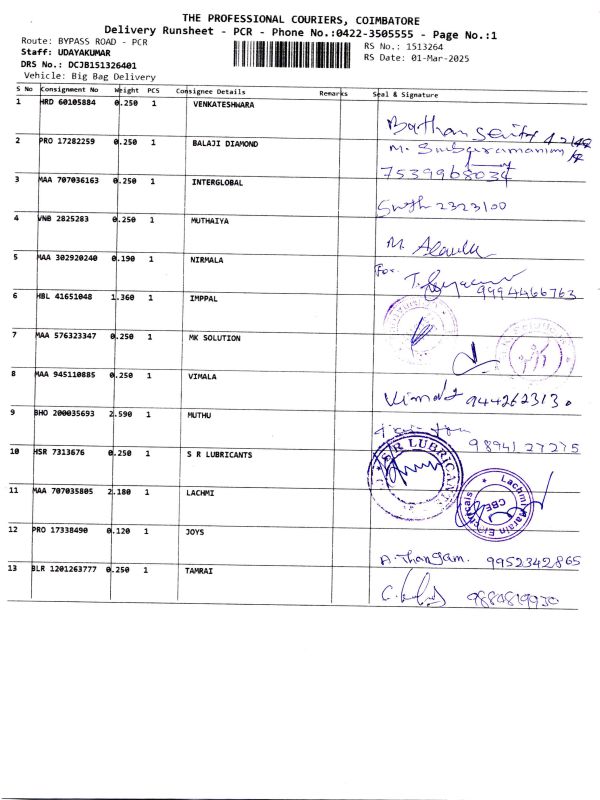 THE PROFESSIONAL COURIERS, COIMBATORE
Delivery Runsheet - PCR - Phone No.:0422-3505555 - Page No.:1
Route: BYPASS ROAD - PCR
RS No.: 1513264
Staff: UDAYAKUMAR
RS Date: 01-Mar-2025
DRS No.: DCJB151326401
Vehicle: Big Bag Delivery
S No Consignment No Weight PCS Consignee Details Remarks Seal & Signature
1 HRD 60105884 0.250 1 VENKATESHWARA
2 PRO 17282259 0.250 1 BALAJI DIAMOND
M. Subramaniam
7539968034
3 MAA 707036163 0.250 1 INTERGLOBAL
2323100
4 VNB 2825283 0.250 1 MUTHAIYA
M.
5 MAA 302920240 0.190 1 NIRMALA
For
9994466763
6 HBL 41651048 1.360 1 IMPPAL
7 MAA 576323347 0.250 1 MK SOLUTION
8 MAA 945110885 0.250 1 VIMALA
Vimala 944262313.
9 BHO 200035693 2.590 1 MUTHU
9894127275
10 HSR 7313676 0.250 1 S R LUBRICANTS
R LUBRICANTS
11 MAA 707035805 2.180 1 LACHMI
Lachmi Narain Electricals
CBE
12 PRO 17338490 0.120 1 JOYS
A. Thangam. 9952342865
13 BLR 1201263777 0.250 1 TAMRAI